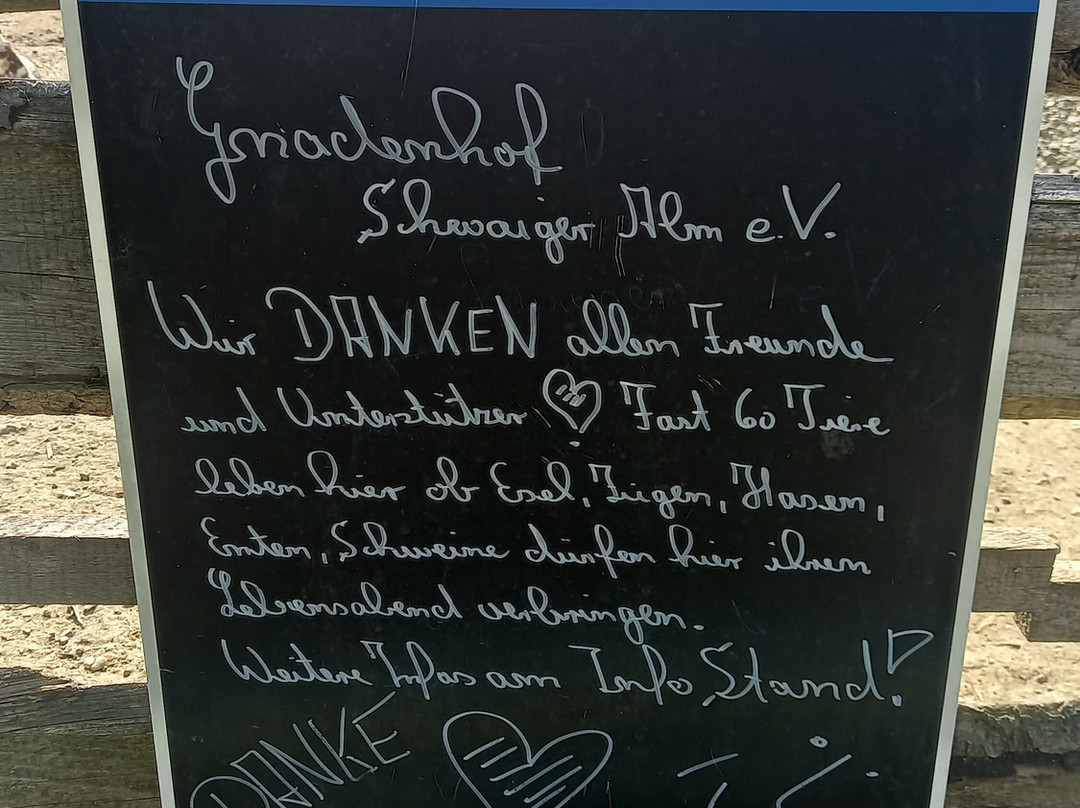 Gnadenhof
Schwaiger Alm e.V.
Wir DANKEN allen Freunde
und Unterstützer Fast 60 Tiere
leben hier ob Esel, Ziegen, Hasen,
Enten, Schweine dürfen hier ihren
Lebensabend verbringen.
Weitere Infos am Info Stand!
DANKE